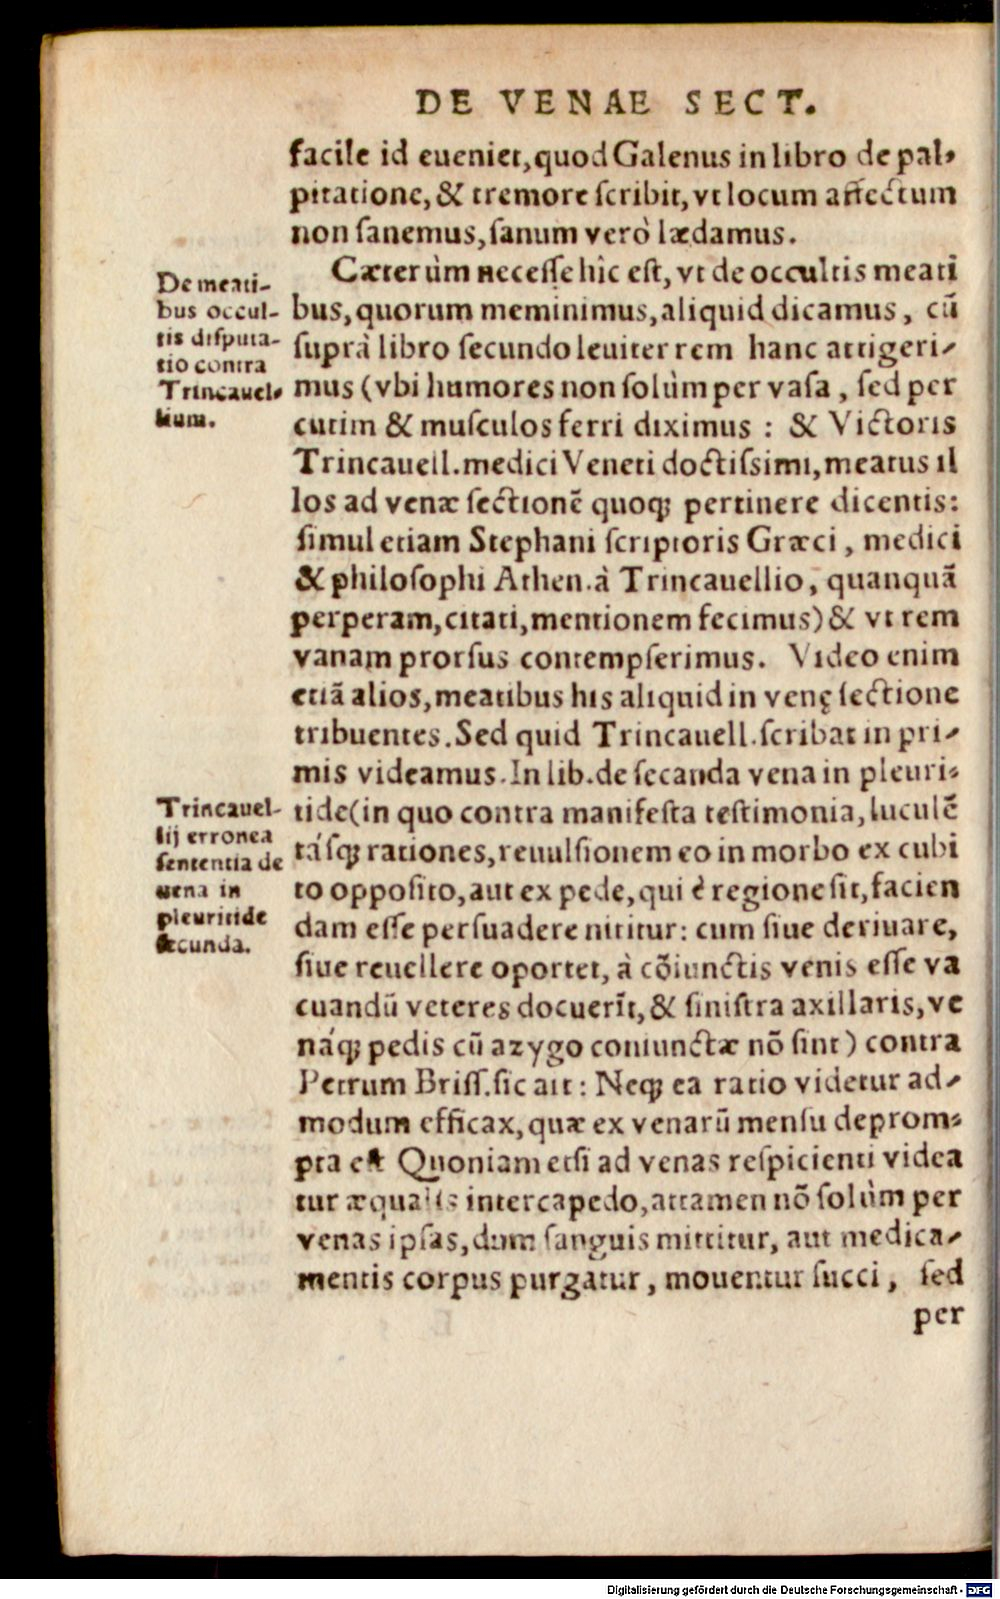 DE VENAE SECT.
facile id eueniet, quod Galenus in libro de pal-
pitatione, & tremore ſcribit, vt locum affectum
non ſanemus, ſanum verò lædamus.
Cæterùm neceſſe hîc eſt, vt de occultis meati
bus, quorum meminimus, aliquid dicamus, cū
ſuprà libro ſecundo leuiter rem hanc attigeri-
mus (vbi humores non ſolùm per vaſa, ſed per
cutim & muſculos ferri diximus : & Victoris
Trincauell. medici Veneti doctiſsimi, meatus il
los ad venæ ſectionē quoq; pertinere dicentis:
ſimul etiam Stephani ſcriptoris Græci, medici
& philoſophi Athen. à Trincauellio, quanquā
perperam, citati, mentionem fecimus) & vt rem
vanam prorſus contempſerimus. Video enim
etiā alios, meatibus his aliquid in venę ſectione
tribuentes. Sed quid Trincauell. ſcribat in pri-
mis videamus. In lib. de ſecanda vena in pleuri-
tide (in quo contra manifeſta teſtimonia, luculē
táſq; rationes, reuulſionem eo in morbo ex cubi
to oppoſito, aut ex pede, qui è regione ſit, facien
dam eſſe perſuadere nititur: cum ſiue deriuare,
ſiue reuellere oportet, à cōiunctis venis eſſe va
cuandū veteres docuerīt, & ſiniſtra axillaris, ve
náq; pedis cū azygo coniunctæ nō ſint) contra
Petrum Briſſ. ſic ait : Neq; ea ratio videtur ad-
modum efficax, quæ ex venarū menſu deprom-
pta eſt Quoniam etſi ad venas reſpicienti videa
tur æqualis intercapedo, attamen nō ſolùm per
venas ipſas, dum ſanguis mittitur, aut medica-
mentis corpus purgatur, mouentur ſucci, ſed
per
De meati-
bus occul-
tis diſputa-
tio contra
Trincauel-
lium.
Trincauel-
lij erronea
ſententia de
uena in
pleuritide
ſecunda.
Digitalisierung gefördert durch die Deutsche Forschungsgemeinschaft - DFG